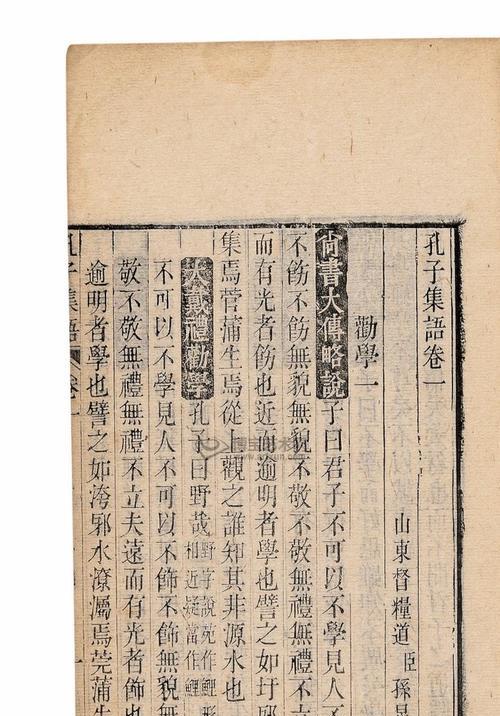 孔子集語卷一
山東督糧道臣孫星
勸學一
尚書大傳略說子曰君子不可以不學見人不
不飭不飭無貌無貌不敬不敬無禮無禮不立夫遠
而有光者飭也近而逾明者學也譬之如圩邪
集焉菅蒲生焉從上觀之誰知其非源水也
大戴禮勸學孔子曰野哉野字說苑作鯉
相近疑當作鯉
不可以不學見人不可以不飾不飾無貌
敬不敬無禮無禮不立夫遠而有光者飾也
逾明者學也譬之如洿邪水潦灟焉莞蒲生
孔子集語 卷一